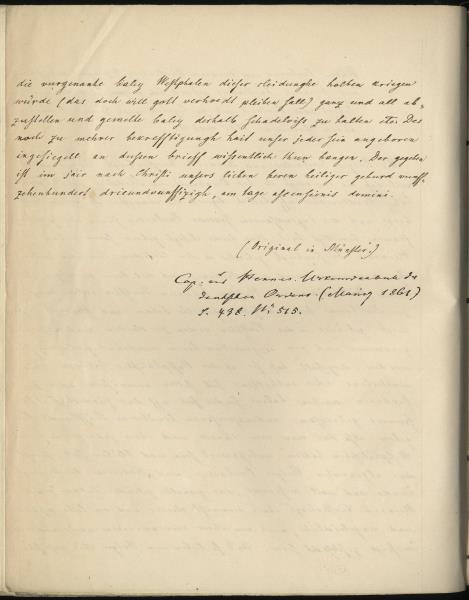 die vurgenante baley Westphalen dieser cleidunghe halben kriegen
würde (das doch will gott verhoedt pleiben sall) ganz und all ab-
zustellen und gemelte baley deshalb schadelois zu halten etc. Des
noch zu mehrer bekrefftigungh hait unser jeder sein angeboren
ingesiegell an dussen brieff wissentlich thun hangen. Der gegeben
ist im jair nach Christi unsers lieben heren heiliger geburd vunff-
zehenhundert drieundvunffizigh, am tage ascensionis domini.
(Original in Münster.)
Cop. aus Hennes. Urkundenbuch des
deutschen Ordens. (Mainz 1861)
S. 438. Nr. 515.